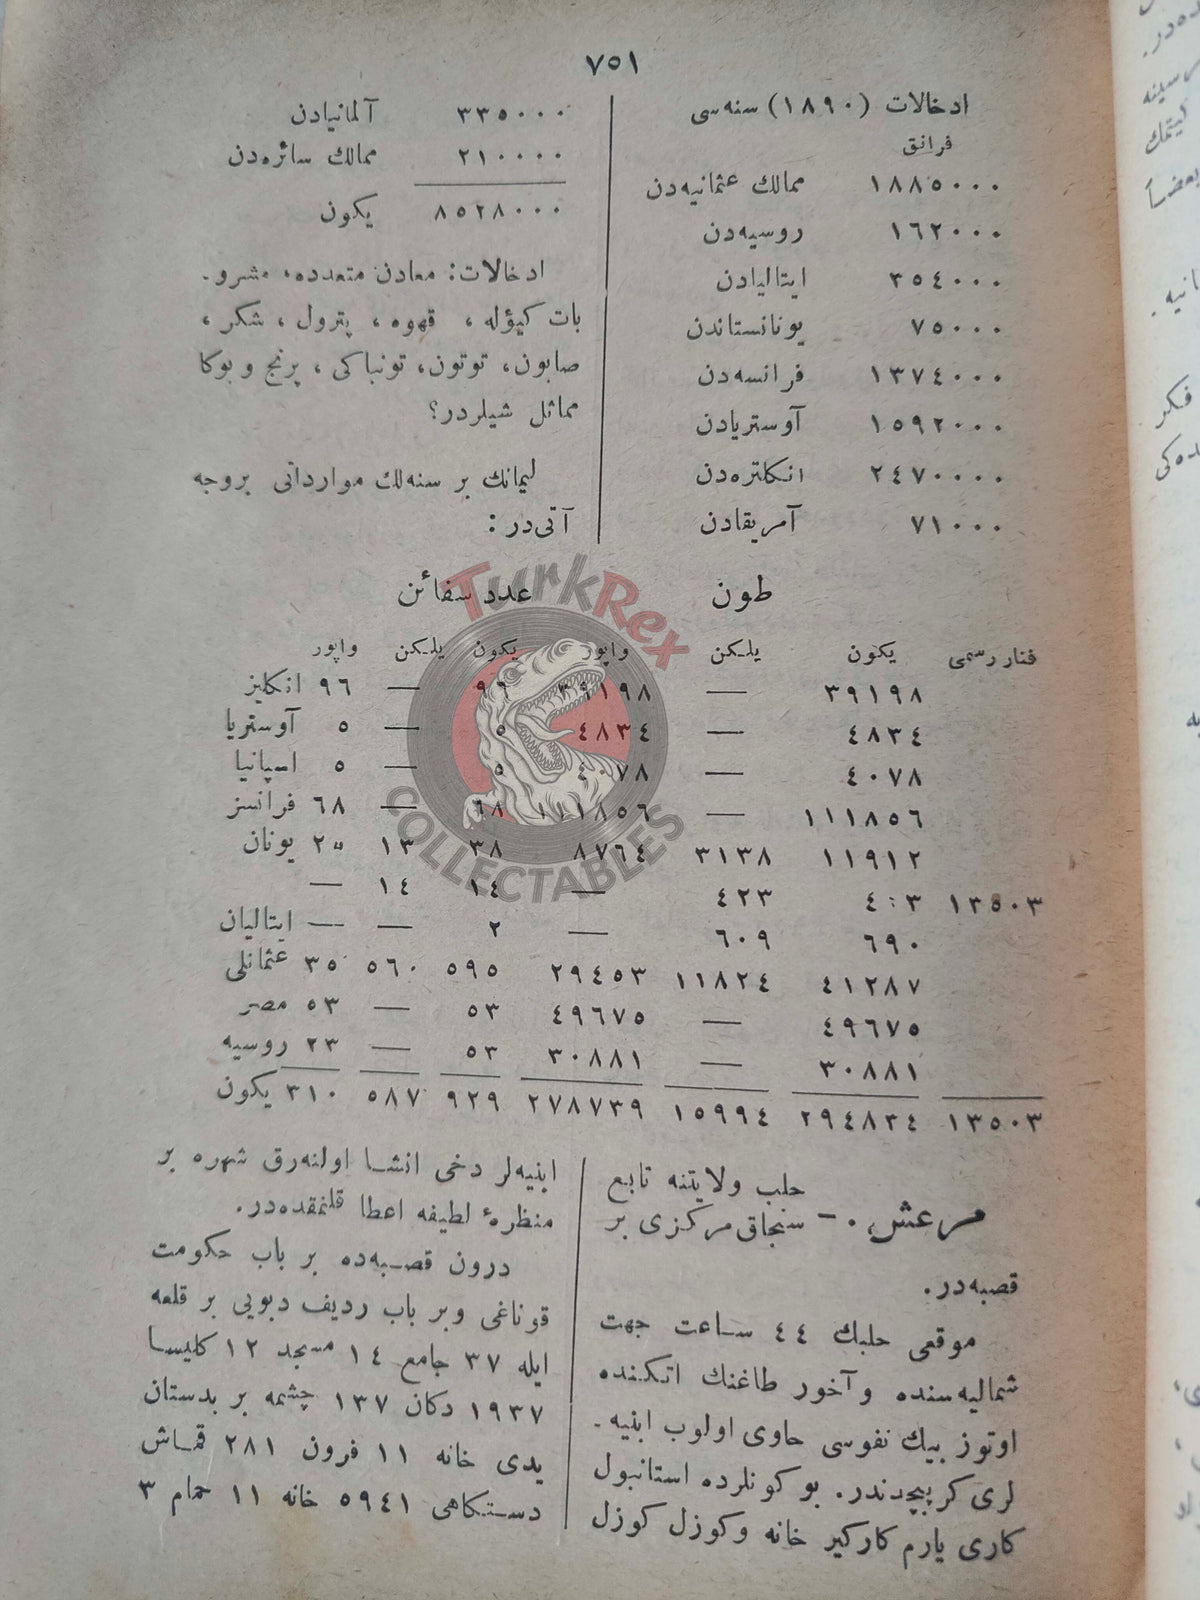 ٧٥١
ادخالات (١٨٩٠) سنه‌سی
فرانق
١٨٨٥٠٠٠ ممالك عثمانیه‌دن
١٦٢٠٠٠ روسیه‌دن
٣٥٤٠٠٠ ایتالیادن
٧٥٠٠٠ یونانستاندن
١٣٧٤٠٠٠ فرانسه‌دن
١٥٩٢٠٠٠ آوستریادن
٢٤٧٠٠٠٠ انکلتره‌دن
٧١٠٠٠ آمریقادن
٣٣٥٠٠٠ آلمانیادن
٢١٠٠٠٠ ممالك سائره‌دن
٨٥٢٨٠٠٠ یکون
ادخالات: معادن متعدده، مشرو-
بات کیؤله ، قهوه ، پترول ، شکر ،
صابون، توتون، تونباکی ، پرنج و بوکا
مماثل شیلردر؟
لیمانك بر سنه‌لك مواردانی بروجه
آتی‌در :
طون عدد سفائن
فنار رسمی یکون یلکن واپور یکون یلکن واپور
٣٩١٩٨ — ٣٩١٩٨ ٩٦ — ٩٦ انکلیز
٤٨٣٤ — ٤٨٣٤ ٥ — ٥ آوستریا
٤٠٧٨ — ٤٠٧٨ ٥ — ٥ اسپانیا
١١١٨٥٦ — ١١١٨٥٦ ٦٨ — ٦٨ فرانسز
١١٩١٢ ٣١٣٨ ٨٧٦٤ ٣٨ ١٣ ٢٥ یونان
١٣٥٠٣ ٤٢٣ — ١٤ ١٤ —
٦٩٠ ٦٠٩ — ٢ — — ایتالیان
٤١٢٨٧ ١١٨٢٤ ٢٩٤٥٣ ٥٩٥ ٥٦٠ ٣٥ عثمانلی
٤٩٦٧٥ — ٤٩٦٧٥ ٥٣ — ٥٣ مصر
٣٠٨٨١ — ٣٠٨٨١ ٥٣ — ٢٣ روسیه
١٣٥٠٣ ٢٩٤٨٣٤ ١٥٩٩٤ ٢٧٨٧٣٩ ٩٢٩ ٥٨٧ ٣١٠ یکون
حلب ولایتنه تابع
مرعش، .— سنجاق مرکزی بر
قصبه‌در.
موقعی حلبك ٤٤ ساعت جهت
شمالیه سنده و آخور طاغنك اتکنده
اوتوز بیك نفوسی حاوی اولوب ابنیه-
لری کرپیچدندر. بو کونلرده استانبول
کاری یارم کارکیر خانه و کوزل کوزل
ابنیه‌لر دخی انشا اولنه‌رق شهره بر
منظرهٔ لطیفه اعطا قلنمقده‌در.
درون قصبه‌ده بر باب حکومت
قوناغی وبر باب ردیف دبویی بر قلعه
ایله ٣٧ جامع ١٤ مسجد ١٢ کلیسا
١٩٣٧ دکان ١٣٧ چشمه بر بدستان
یدی خانه ١١ فرون ٢٨١ قماش
دستکاهی ٥٩٤١ خانه ١١ حمام ٣
TurkRex
COLLECTABLES